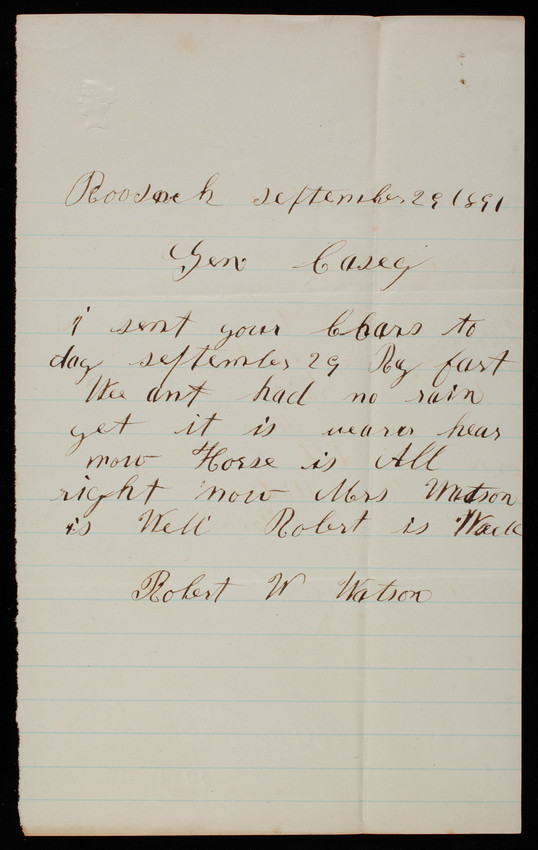 september 29 1891
Gen Casey
i sent your Chars to
day september 29 By fast
We ant had no rain
yet it is warm hear
now Horse is All
right now Mrs Watson
is Well Robert is Well
Robert W Watson